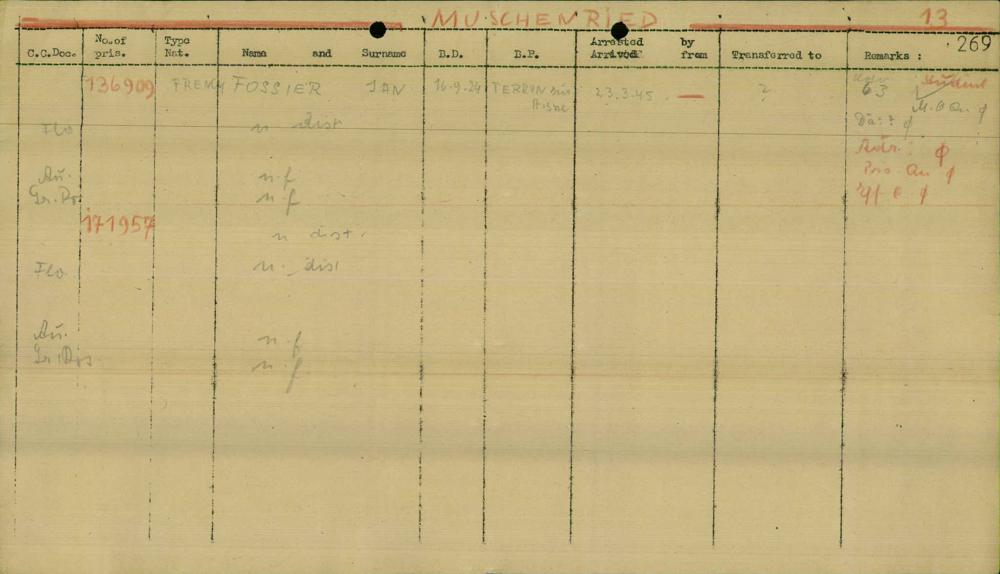 MUSCHENRIED 13
269
C.C.Doc. No.of pris. Type Nat. Name and Surname B.D. B.P. Arrested Arrived by from Transferred to Remarks :
136909 FREM FOSSIER JAN 16.9.24 TERRON sur Aisne 23.3.45. — ? 63 student
M.G.Qu. φ
Flo n dist Da:: φ
Adr. : φ
Au. n.f Pris. Qu. φ
Gr.Ro n.f φ
171957 n dist.
Flo. n. dist
Au. n.f
Gr.Ros n.f